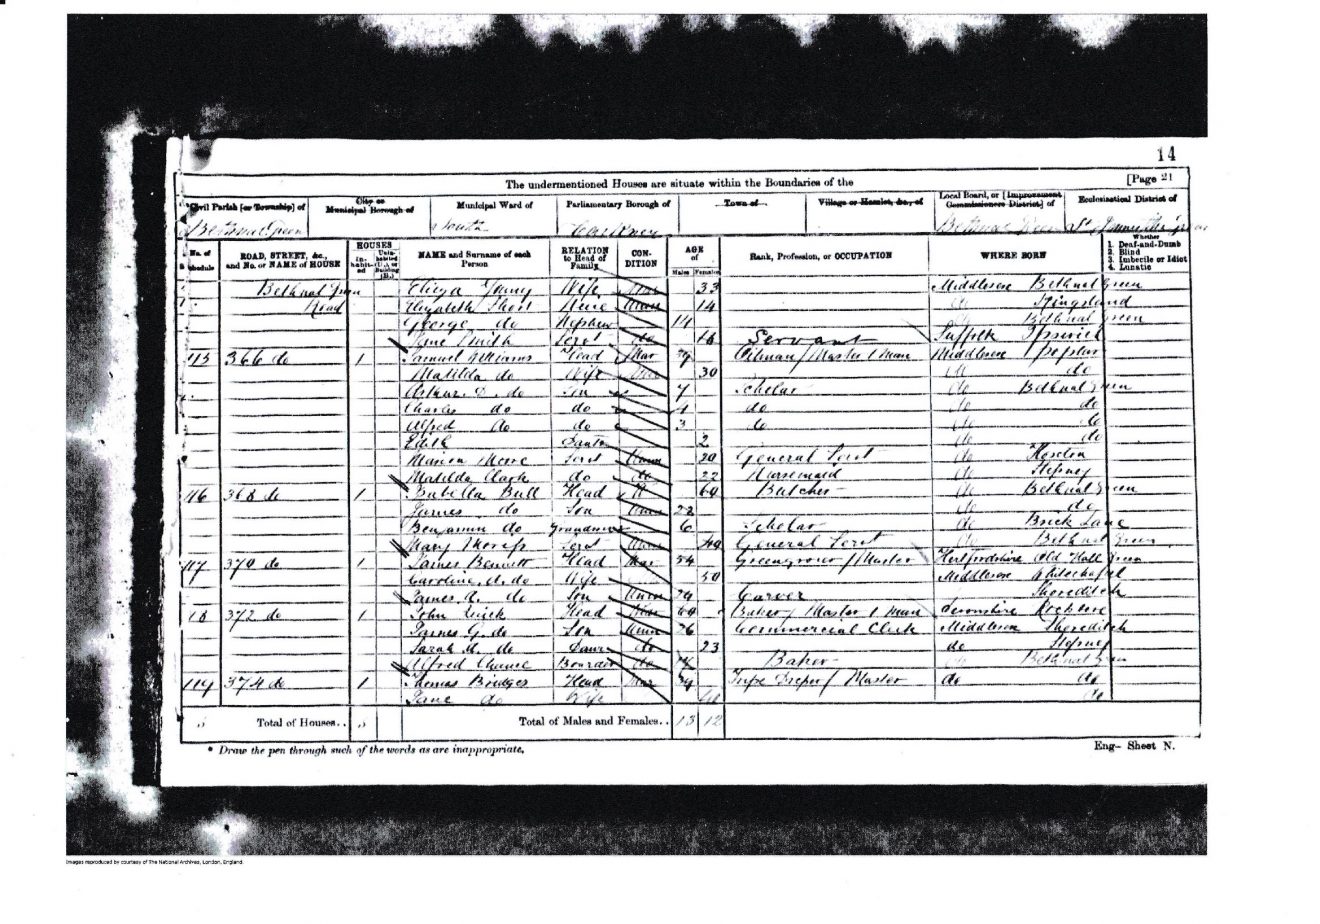 14
The undermentioned Houses are situate within the Boundaries of the [Page 21
Civil Parish [or Township] of City or Municipal Borough of Municipal Ward of Parliamentary Borough of Town of Village or Hamlet, &c., of Local Board, or [Improvement Commissioners District] of Ecclesiastical District of
Bethnal Green South Hackney Bethnal Green
No. of Schedule ROAD, STREET, &c., and No. or NAME of HOUSE HOUSES Inhabited Uninhabited (U.), or Building (B.) NAME and Surname of each Person RELATION to Head of Family CONDITION AGE of Males Females Rank, Profession, or OCCUPATION WHERE BORN Whether 1. Deaf-and-Dumb 2. Blind 3. Imbecile or Idiot 4. Lunatic
Bethnal Green Eliza Wife Mar 33 Middlesex Bethnal Green
Road Elizabeth Short Niece Unm 14 do Kingsland
George do Nephew do 14 do Bethnal Green
Jane Smith Servt do 18 Servant Suffolk Ipswich
115 366 do 1 Samuel Williams Head Mar Oilman / Master 1 Man Middlesex Poplar
Matilda do Wife Mar 30 do do
Arthur do Son 7 Scholar do Bethnal Green
Charles do do do do do
Alfred do do 3 do do do
Edith Daur 2 do do
Marion Servt Unm 20 General Servt do Hoxton
Matilda Clark do do 22 Nursemaid do Stepney
116 368 do 1 Isabella Bull Head W 69 Butcher do Bethnal Green
James do Son Unm 22 do do
Benjamin do Grandson 6 Scholar do Brick Lane
Mary Servt General Servt do Bethnal Green
117 370 do 1 James Bennett Head Mar 54 Greengrocer / Master Hertfordshire Old Hall Green
Caroline A. do Wife 50 Middlesex Whitechapel
James A. do Son Unm 24 Carver Shoreditch
118 372 do 1 John Quick Head 64 Baker / Master 1 Man Devonshire
James G. do Son Unm 26 Commercial Clerk Middlesex Shoreditch
Sarah M. do Daur do 23 do Stepney
Alfred Boarder do Baker do Bethnal Green
119 374 do 1 Thomas Bridges Head Mar Tripe Dresser / Master do do
Jane do Wife do
5 Total of Houses.. 5 Total of Males and Females.. 13 12
* Draw the pen through such of the words as are inappropriate.
Eng- Sheet N.
Images reproduced by courtesy of The National Archives, London, England.